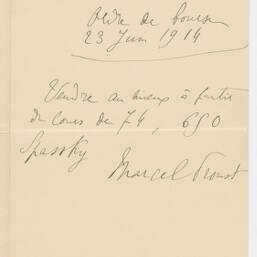 Ordre de bourse
23 Juin 1914
Vendre au mieux à partir
du cours de 74, 650
Spassky
Marcel Proust